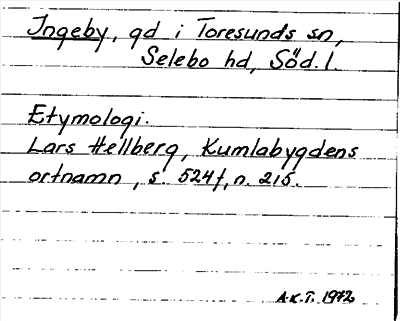 Ingeby, gd i Toresunds sn,
Selebo hd, Söd. l.
Etymologi.
Lars Hellberg, Kumlabygdens
ortnamn, s. 524f, n. 215.
A.K.T. 1972